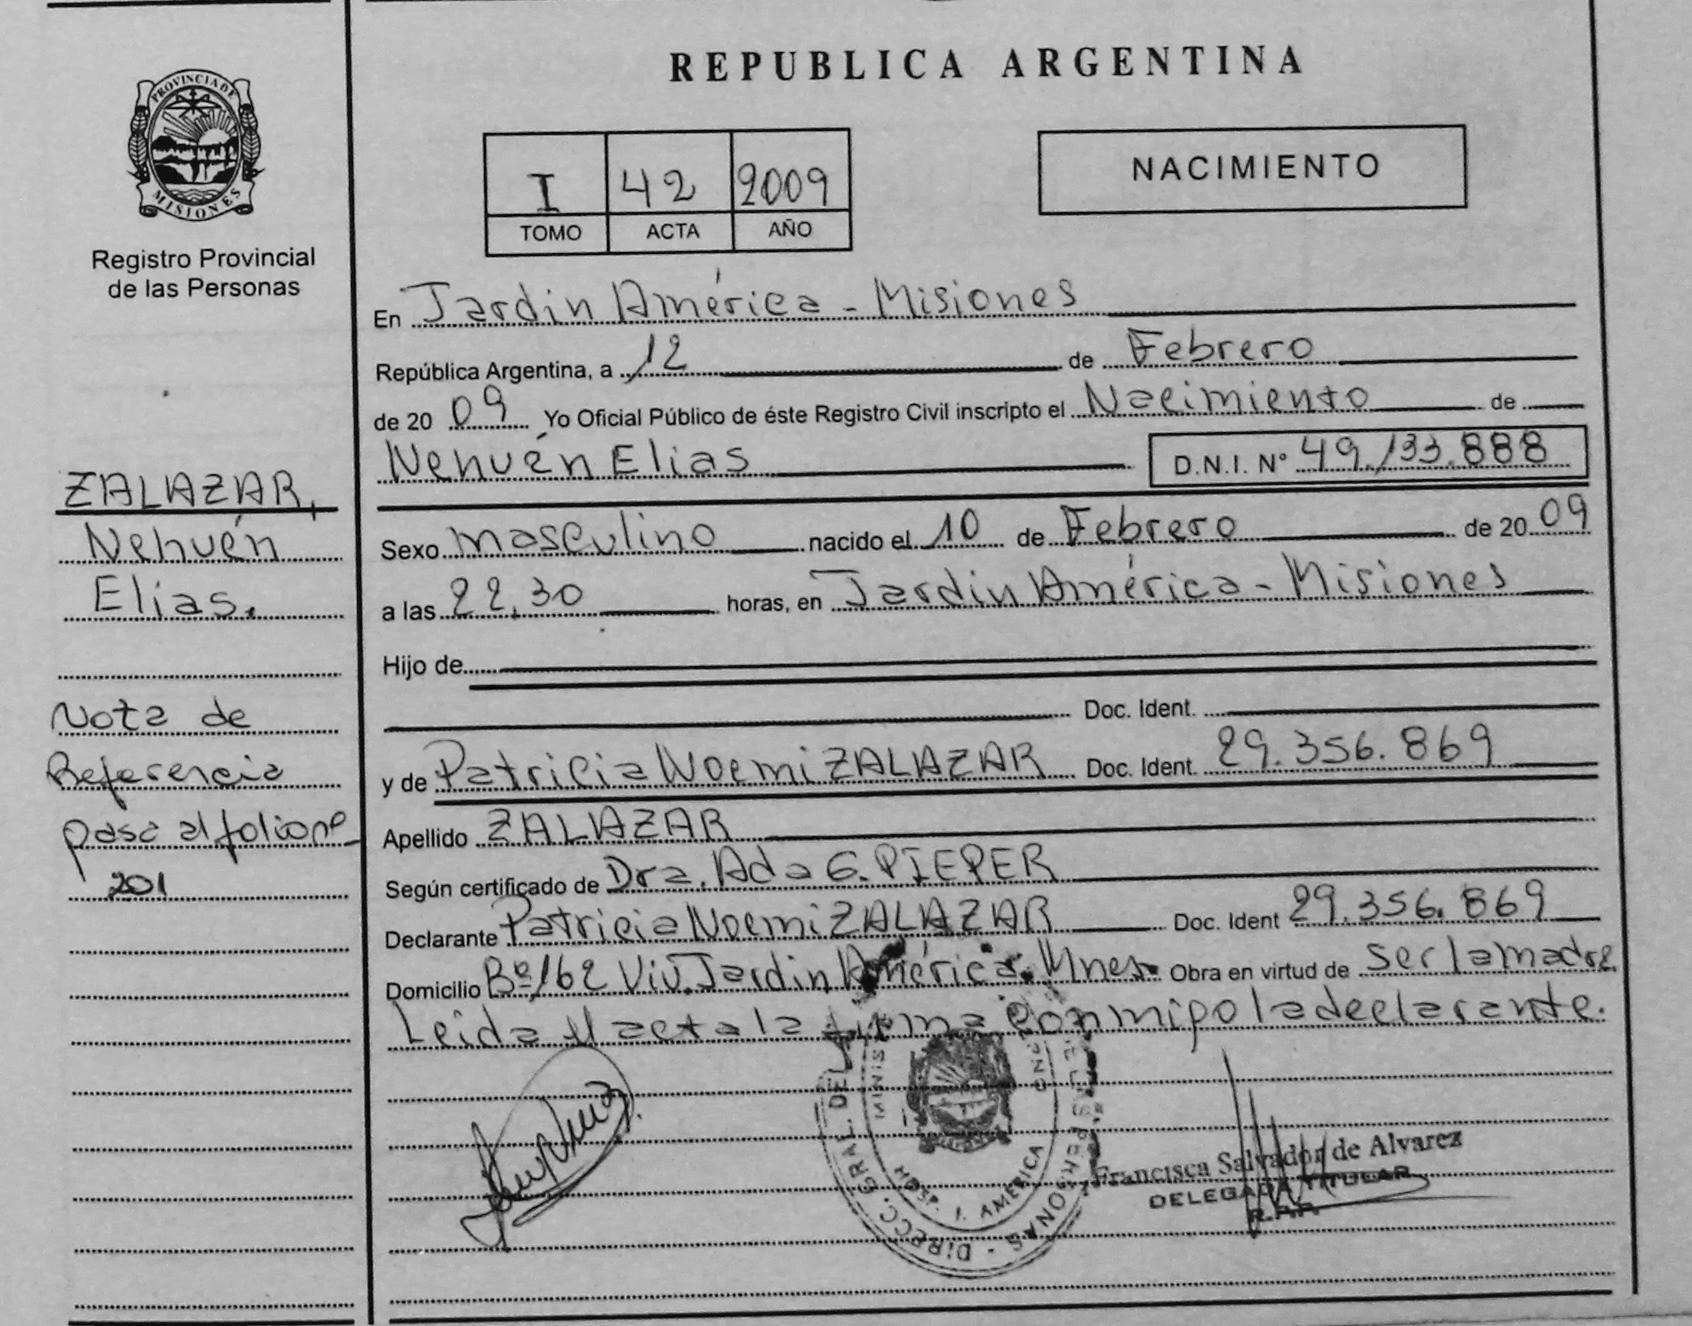 REPUBLICA ARGENTINA
PROVINCIA DE
MISIONES
Registro Provincial
de las Personas
I 42 2009
TOMO ACTA AÑO
NACIMIENTO
En Jardín América - Misiones
República Argentina, a 12 de Febrero
de 2009 Yo Oficial Público de éste Registro Civil inscripto el Nacimiento de
Nehuén Elias D.N.I. N° 49.133.888
ZALAZAR,
Nehuén
Elias.
Sexo masculino nacido el 10 de Febrero de 2009
a las 22,30 horas, en Jardin América - Misiones
Hijo de
Doc. Ident.
y de Patricia Noemi ZALAZAR Doc. Ident. 29.356.869
Nota de
Referencia
pasa al folio nº
201
Apellido ZALAZAR
Según certificado de Dra. Ada G. PIEPER
Declarante Patricia Noemi ZALAZAR Doc. Ident 29.356.869
Domicilio Bº 162 Viv. Jardin América. Mnes. Obra en virtud de ser la madre
Leida el acta la firma conmipo la declarante.
DIRECC. GRAL. DEL PERSONAS
MINIS
HOSP. J. AMERICA
Francisca Salvador de Alvarez
DELEGADA TITULAR
R.P.P.